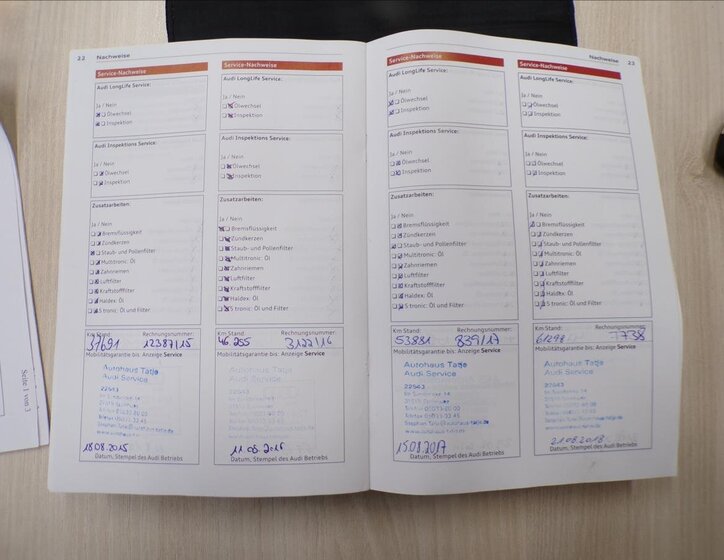 22 Nachweise
Service-Nachweise
Audi LongLife Service:
Ja / Nein
Ölwechsel
Inspektion
Audi Inspektions Service:
Ja / Nein
Ölwechsel
Inspektion
Zusatzarbeiten:
Ja / Nein
Bremsflüssigkeit
Zündkerzen
Staub- und Pollenfilter
Multitronic: Öl
Zahnriemen
Luftfilter
Kraftstofffilter
Haldex: Öl
S tronic: Öl und Filter
Km Stand: Rechnungsnummer:
37691 12387/15
Mobilitätsgarantie bis: Anzeige Service
Autohaus Tatje
Audi Service
18.08.2015
Datum, Stempel des Audi Betriebs
Service-Nachweise
Audi LongLife Service:
Ja / Nein
Ölwechsel
Inspektion
Audi Inspektions Service:
Ja / Nein
Ölwechsel
Inspektion
Zusatzarbeiten:
Ja / Nein
Bremsflüssigkeit
Zündkerzen
Staub- und Pollenfilter
Multitronic: Öl
Zahnriemen
Luftfilter
Kraftstofffilter
Haldex: Öl
S tronic: Öl und Filter
Km Stand: Rechnungsnummer:
46 255 3122/16
Mobilitätsgarantie bis: Anzeige Service
Autohaus Tatje
Audi Service
Datum, Stempel des Audi Betriebs
Nachweise 23
Service-Nachweise
Audi LongLife Service:
Ja / Nein
Ölwechsel
Inspektion
Audi Inspektions Service:
Ja / Nein
Ölwechsel
Inspektion
Zusatzarbeiten:
Ja / Nein
Bremsflüssigkeit
Zündkerzen
Staub- und Pollenfilter
Multitronic: Öl
Zahnriemen
Luftfilter
Kraftstofffilter
Haldex: Öl
S tronic: Öl und Filter
Km Stand: Rechnungsnummer:
53881 839/17
Mobilitätsgarantie bis: Anzeige Service
Autohaus Tatje
Audi Service
15.08.2017
Datum, Stempel des Audi Betriebs
Service-Nachweise
Audi LongLife Service:
Ja / Nein
Ölwechsel
Inspektion
Audi Inspektions Service:
Ja / Nein
Ölwechsel
Inspektion
Zusatzarbeiten:
Ja / Nein
Bremsflüssigkeit
Zündkerzen
Staub- und Pollenfilter
Multitronic: Öl
Zahnriemen
Luftfilter
Kraftstofffilter
Haldex: Öl
S tronic: Öl und Filter
Km Stand: Rechnungsnummer:
61298 7738
Mobilitätsgarantie bis: Anzeige Service
Autohaus Tatje
Audi Service
21.08.2018
Datum, Stempel des Audi Betriebs
Seite 1 von 3